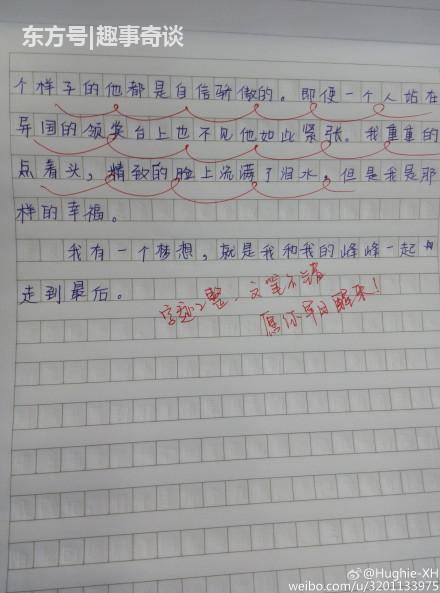 东方号|趣事奇谈
个样子的他都是自信骄傲的。即便一个人站在
异国的领奖台上也不见他如此紧张。我重重的
点着头，精致的脸上流满了泪水，但是我是那
样的幸福。
我有一个梦想，就是我和我的峰峰一起
走到最后。
字迹工整，文笔不错
愿你早日醒来！
@Hughie-XH
weibo.com/u/3201133975